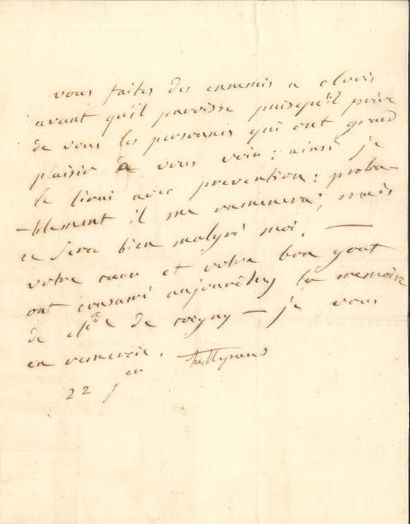 vous faites des ennemis a clovis
avant qu'il paroisse puisqu'il prive
de vous les personnes qui ont grand
plaisir à vous voir: ainsi je
le lirai avec prevention: proba-
-blement il me ramenera; mais
ce sera bien malgré moi. —
votre cœur et votre bon gout
ont consacré aujourdhuy la memoire
de de coigny — je vous
en remercie. Talleyrand
22 jer